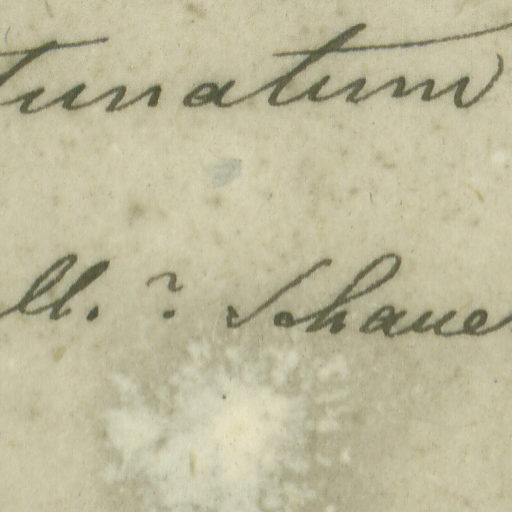 tunatum
ll. ? Schaue